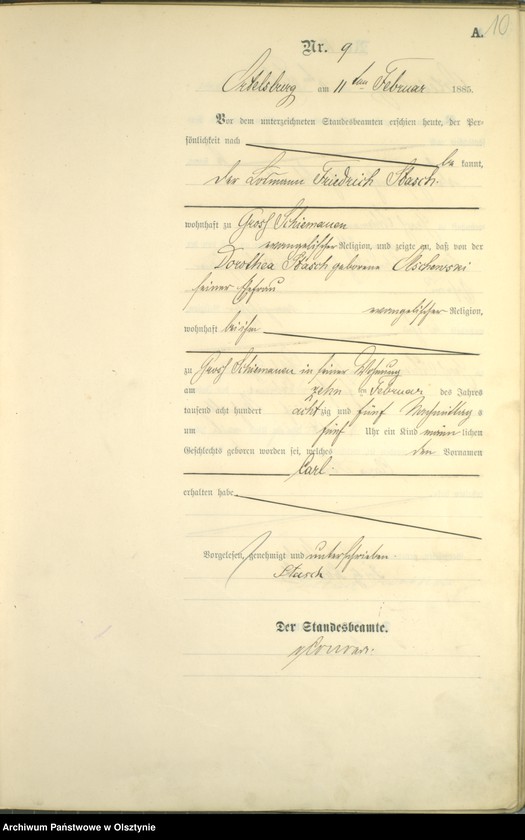 A. 10
Nr. 9
Ortelsburg am 11ten Februar 1885.
Vor dem unterzeichneten Standesbeamten erschien heute, der Per-
sönlichkeit nach
be kannt,
der Losmann Friedrich Stasch.
wohnhaft zu Groß Schiemanen
evangelischer Religion, und zeigte an, daß von der
Dorothea Stasch geborene Olschewski
seiner Ehefrau
evangelischer Religion,
wohnhaft bei ihm
zu Groß Schiemanen in seiner Wohnung
am zehn ten Februar des Jahres
tausend acht hundert achtzig und fünf Nachmittag s
um fünf Uhr ein Kind männ lichen
Geschlechts geboren worden sei, welches den Vornamen
Carl.
erhalten habe.
Vorgelesen, genehmigt und unterschrieben.
Stasch
Der Standesbeamte.
Archiwum Państwowe w Olsztynie